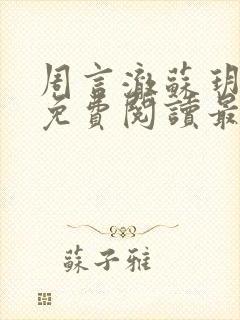 周言澈蘇玥
免費閱讀最
蘇子雅